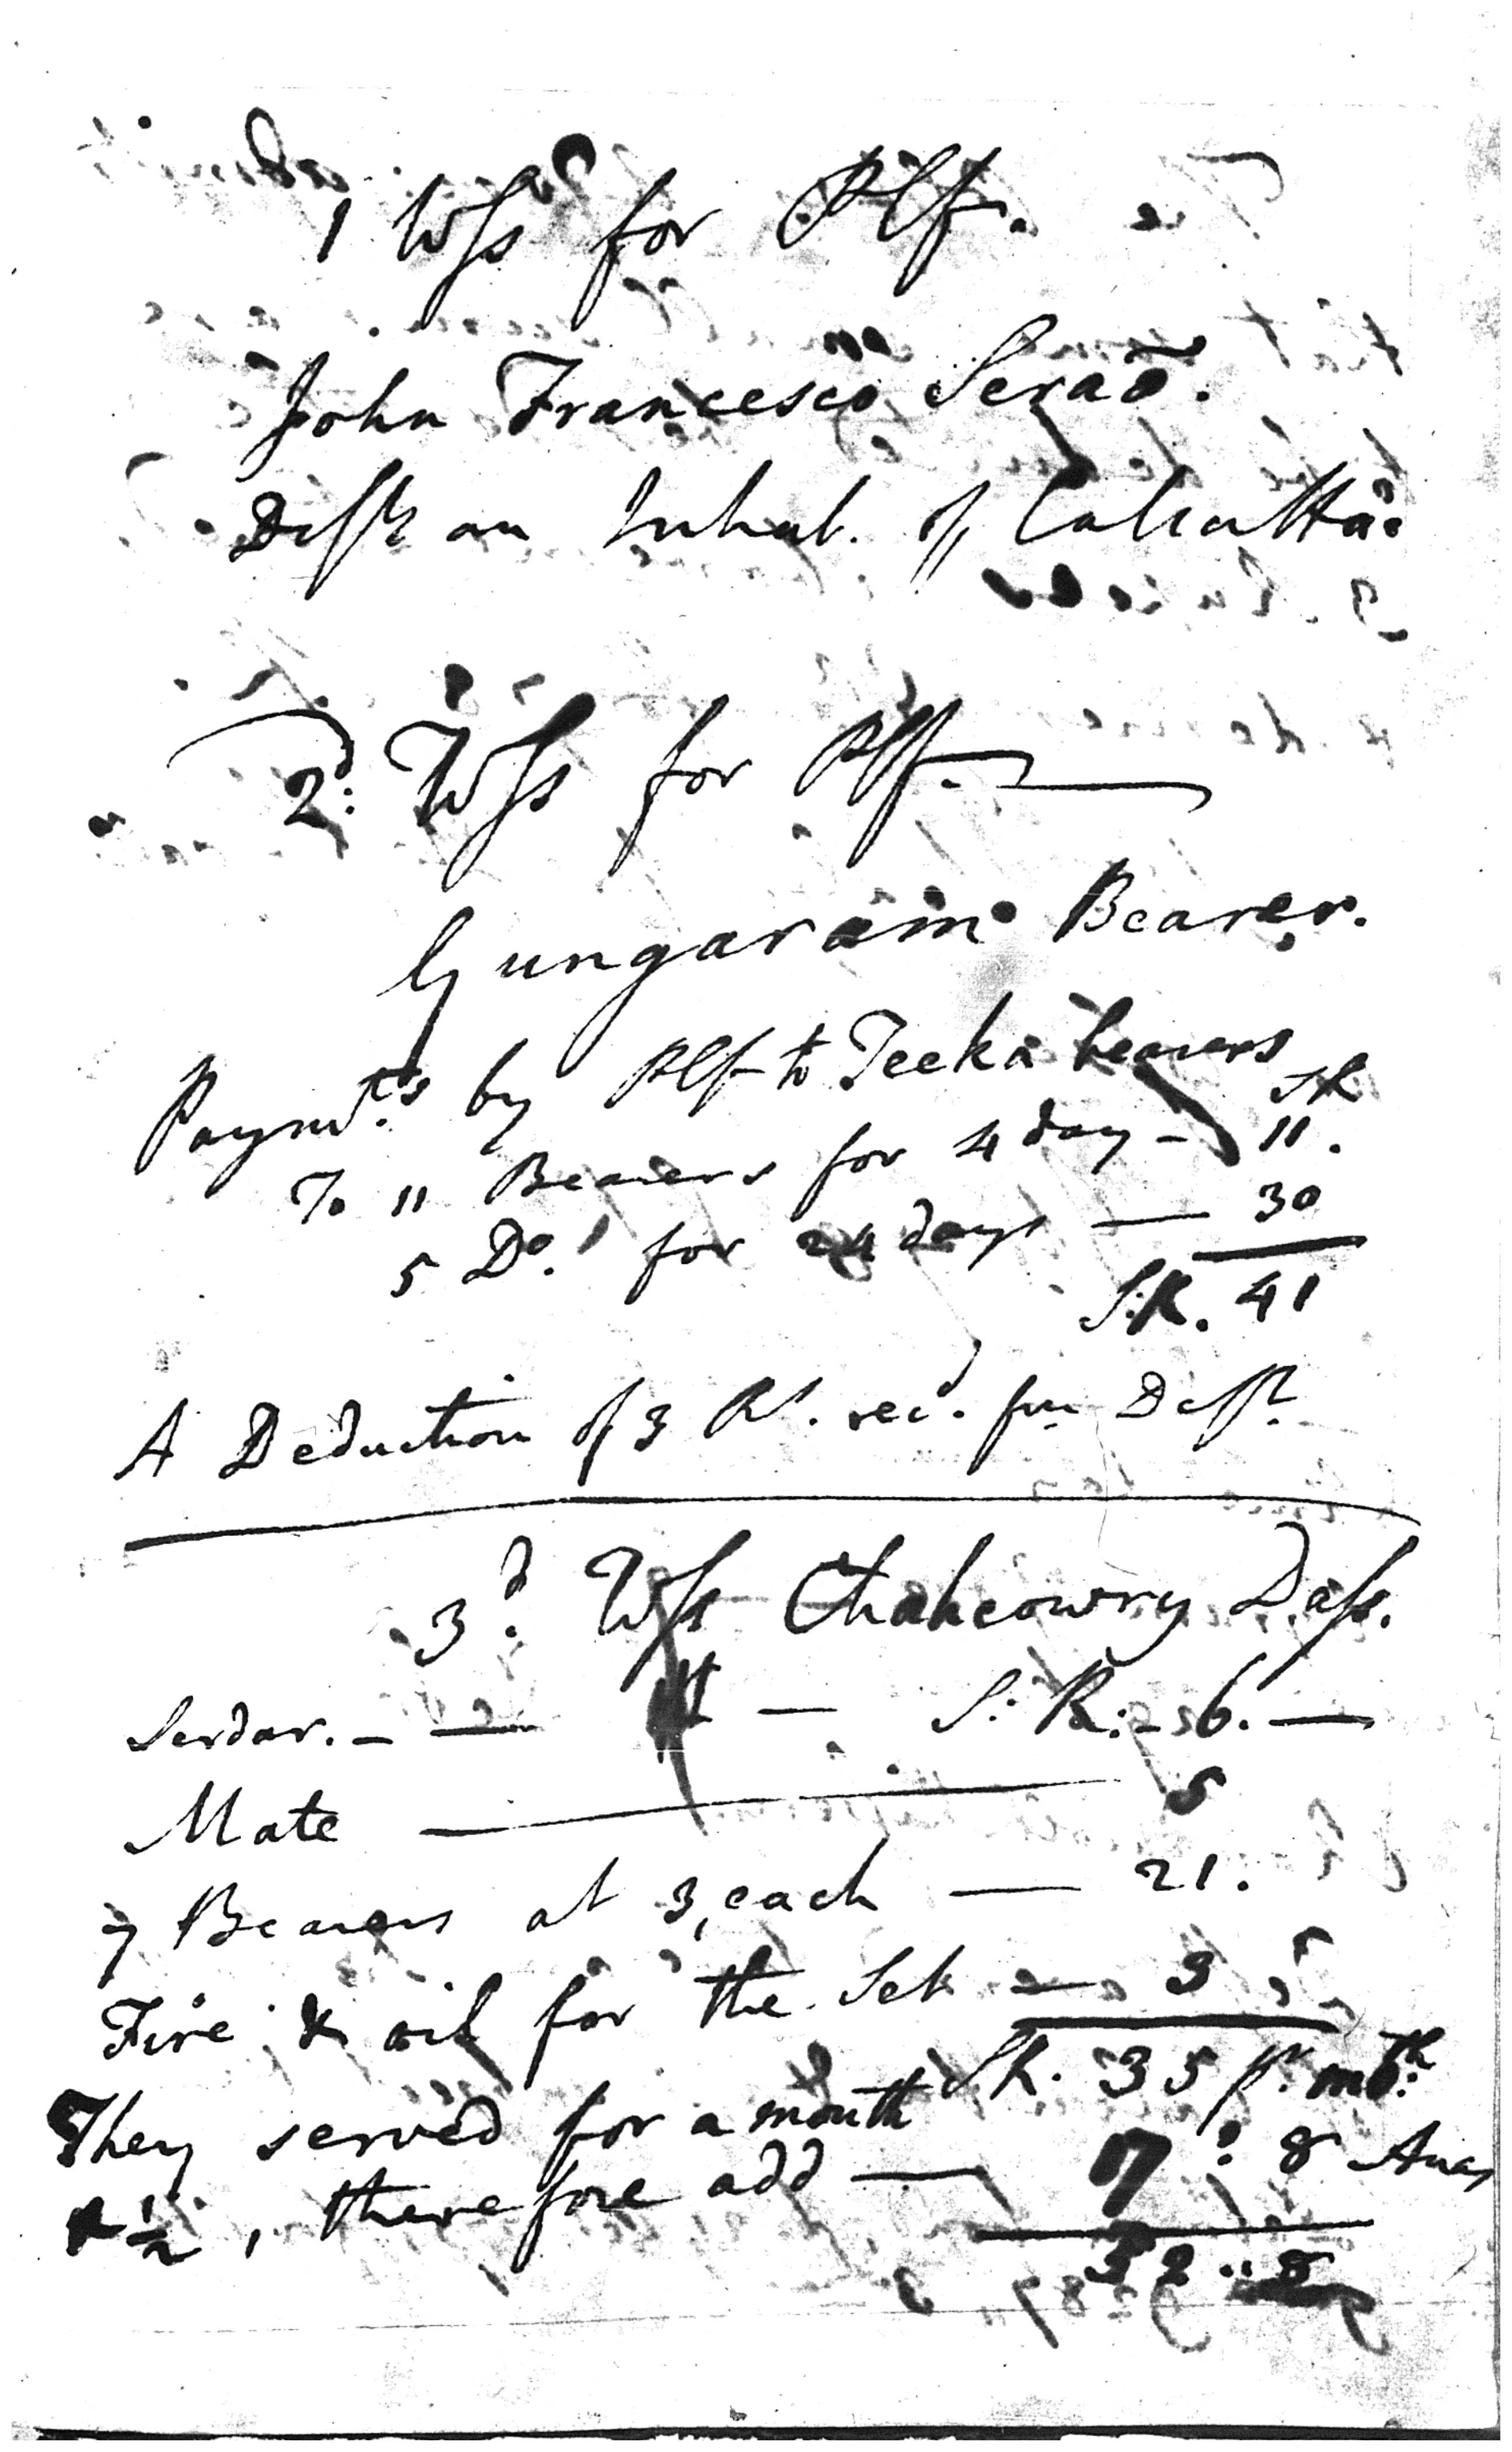 1 Wss for Plf.
John Francesco Serao.
Deft an Inhab. of Calcutta.
2d: Wss for Plf.
Gungaram Bearer.
Paymts. by Plf to Teeka bearers
SR
To 11 Bearers for 4 day - 11.
5 Do. for 24 days — 30
S:R. 41
A Deduction of 3 Rs. recd. fm Deft
3d. Wss Chakcowry Dass.
Serdar. - — — S: R: - 6. —
Mate — 5
7 Bearers at 3, each — 21.
Fire & oil for the Set — 3
SR. 35 pr. mth:
They served for a month
& 1/2, therefore add — 17 : 8 Anas
52 .. 8